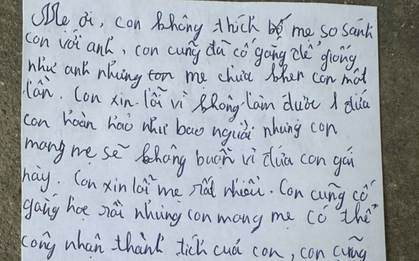 Mẹ ơi, con không thích bố mẹ so sánh
con với anh, con cũng đã cố gắng để giống
như anh nhưng mẹ chưa khen con một
lần. Con xin lỗi vì không làm được 1 đứa
con hoàn hảo như bao người nhưng con
mong mẹ sẽ không buồn vì đứa con gái
này. Con xin lỗi mẹ rất nhiều. Con cũng cố
gắng học rồi nhưng con mong mẹ có thể
công nhận thành tích của con, con cũng